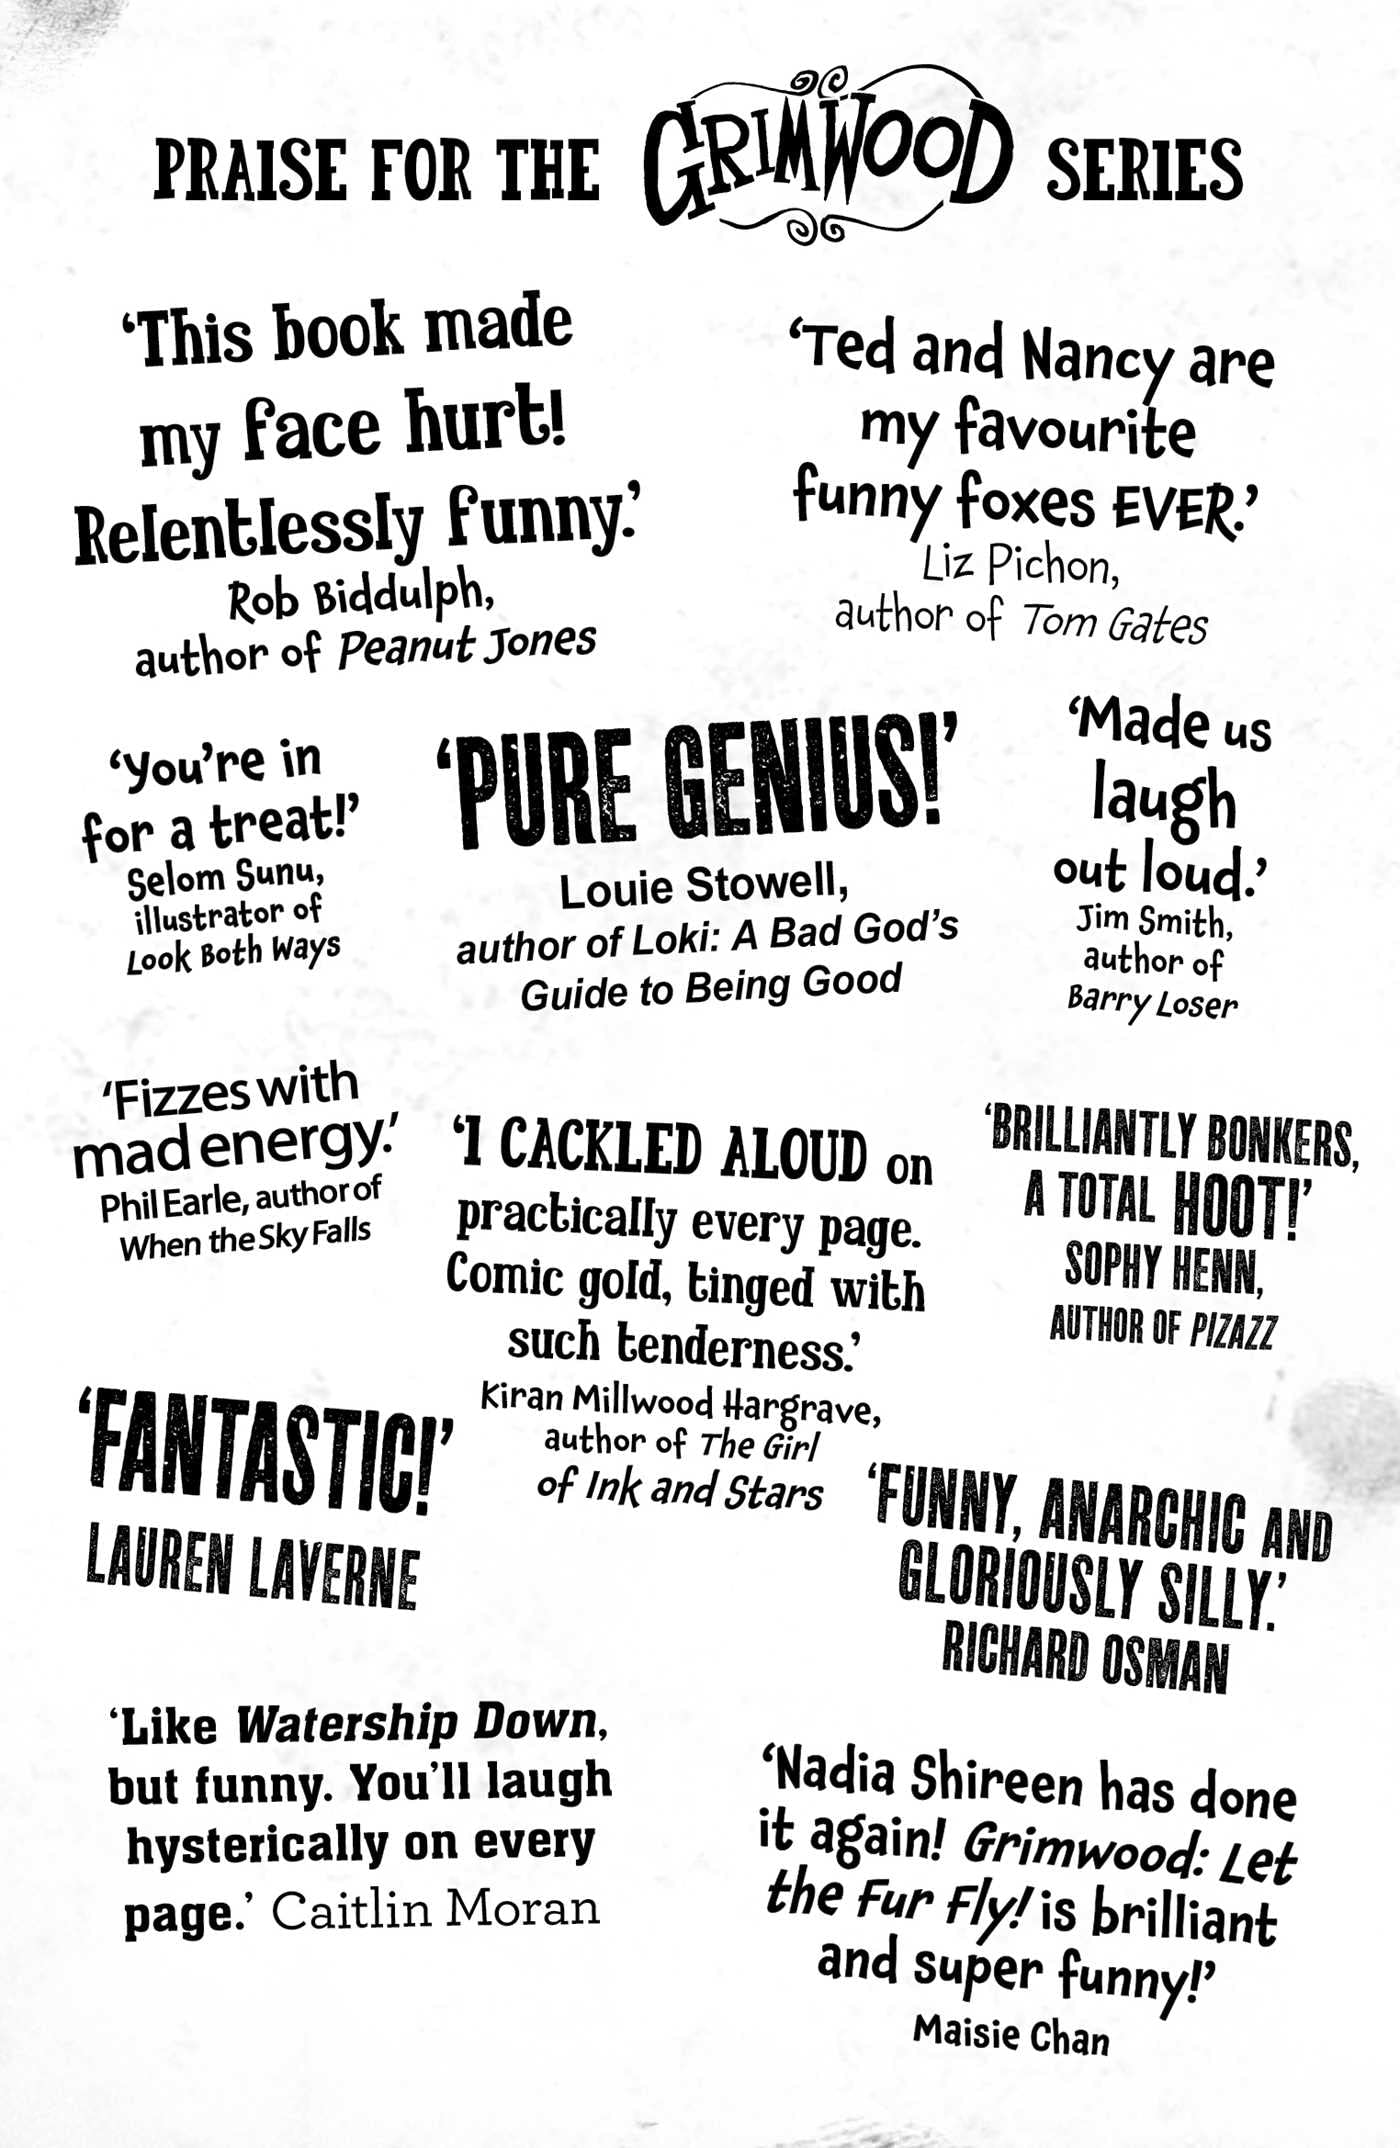 PRAISE FOR THE GRIMWOOD SERIES
‘This book made
my face hurt!
Relentlessly funny.’
Rob Biddulph,
author of Peanut Jones
‘Ted and Nancy are
my favourite
funny foxes EVER.’
Liz Pichon,
author of Tom Gates
‘You’re in
for a treat!’
Selom Sunu,
illustrator of
Look Both Ways
‘PURE GENIUS!’
Louie Stowell,
author of Loki: A Bad God’s
Guide to Being Good
‘Made us
laugh
out loud.’
Jim Smith,
author of
Barry Loser
‘Fizzes with
mad energy.’
Phil Earle, author of
When the Sky Falls
‘I CACKLED ALOUD on
practically every page.
Comic gold, tinged with
such tenderness.’
Kiran Millwood Hargrave,
author of The Girl
of Ink and Stars
‘BRILLIANTLY BONKERS,
A TOTAL HOOT!’
SOPHY HENN,
AUTHOR OF PIZAZZ
‘FANTASTIC!’
LAUREN LAVERNE
‘FUNNY, ANARCHIC AND
GLORIOUSLY SILLY.’
RICHARD OSMAN
‘Like Watership Down,
but funny. You’ll laugh
hysterically on every
page.’ Caitlin Moran
‘Nadia Shireen has done
it again! Grimwood: Let
the Fur Fly! is brilliant
and super funny!’
Maisie Chan